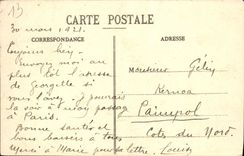 13
CARTE POSTALE
CORRESPONDANCE
ADRESSE
30 mars 1921.
toujours bien.
Envoyez moi au
plus tot l'adresse
de Georgette si
vous savez. Je pourrais
la voir à mon passage
à Paris.
Bonne santé et
bons baisers à tous
Merci à Marie pour sa lettre. Louis
Monsieur Gélin
Kernoa
Paimpol
Cotes du Nord.